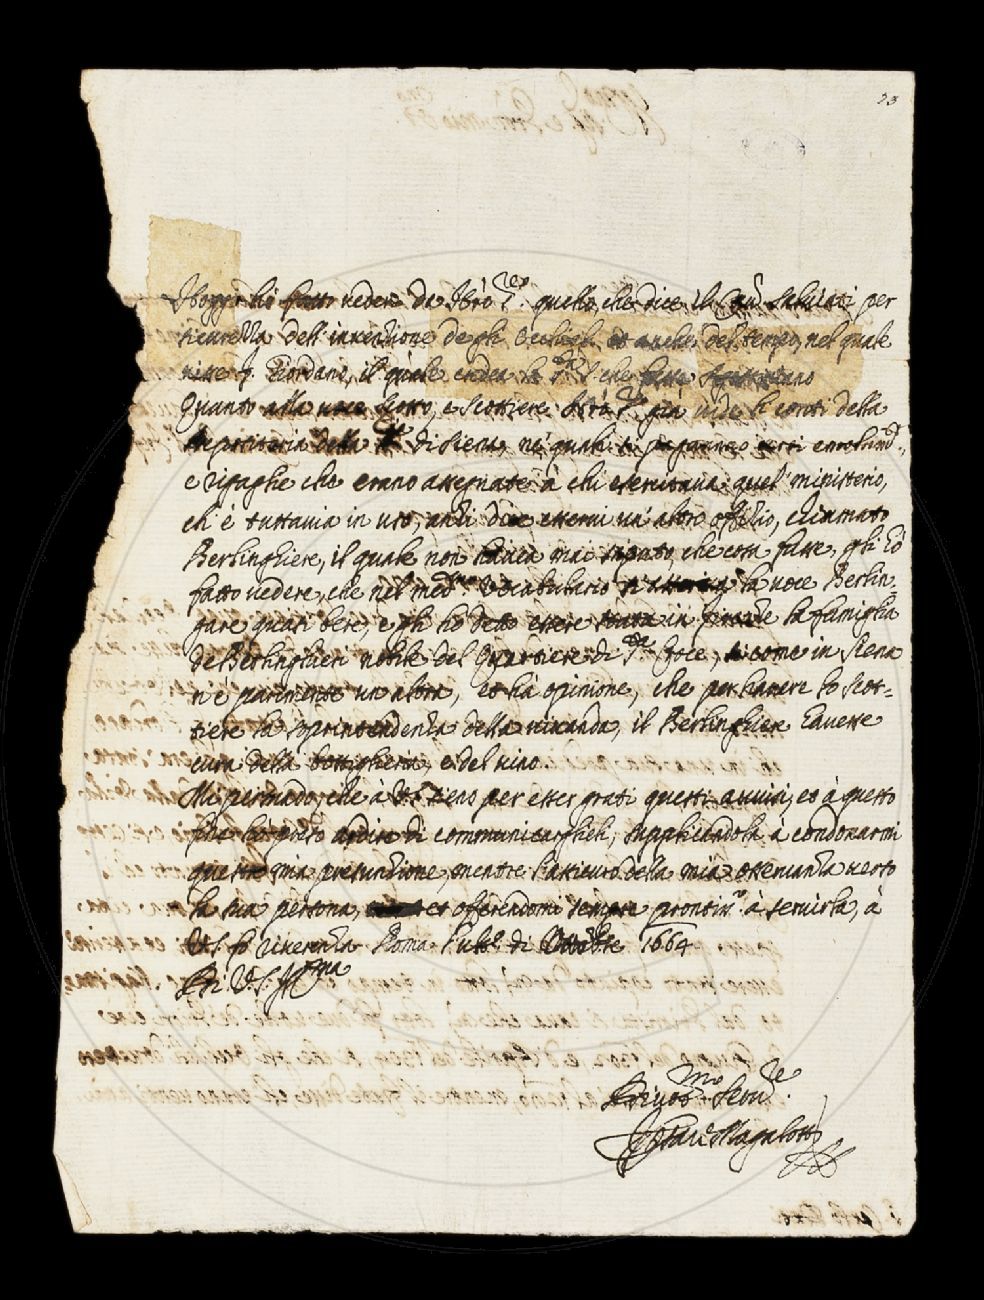 23
Hoggi hò fatto vedere da Abrò quello, che dice il Salviati per
sicurezza dell'invenzione degli Occhiali et anche del tempo, nel quale
visse f. Giordano, il quale
Quanto alla voce Scotto, e Scottiere già vide li conti della
Depositeria della di Siena, ne' quali si pagavano certi emolum.
e rigaglie che erano assegnate à chi esercitava quel ministerio,
ch'è tuttavia in uso, anzi dice esservi un'altro offizio, chiamato
Berlinghiere, il quale non haveva mai saputo, che cosa fusse, gli hò
fatto vedere, che nel med.mo Vocabulario la voce Berlin-
gare quasi bere, e gli hò detto essere stata in Firenze la famiglia
de Berlinghieri nobile del Quartiere di S.ta Croce, si come in Siena
n'è parimente un'altra, et hà opinione, che per havere lo Scot-
tiere la soprintendenza della vivanda, il Berlinghiere havesse
cura della bottiglieria, e del vino.
Mi persuado, che à V.S. siano per esser grati questi avvisi, et à questo
fine hò preso ardire di communicarglieli, supplicandola à condonarmi
questa mia presunzione, mentre l'assicuro della mia osservanza verso
la sua persona, et offerendomi sempre prontiss.o à servirla, à
V.S. fò riverenza Roma l'ult.o di Ottobre 1664
Di V.S. Ill.ma
Divotiss.mo Serv.re
Magalotti